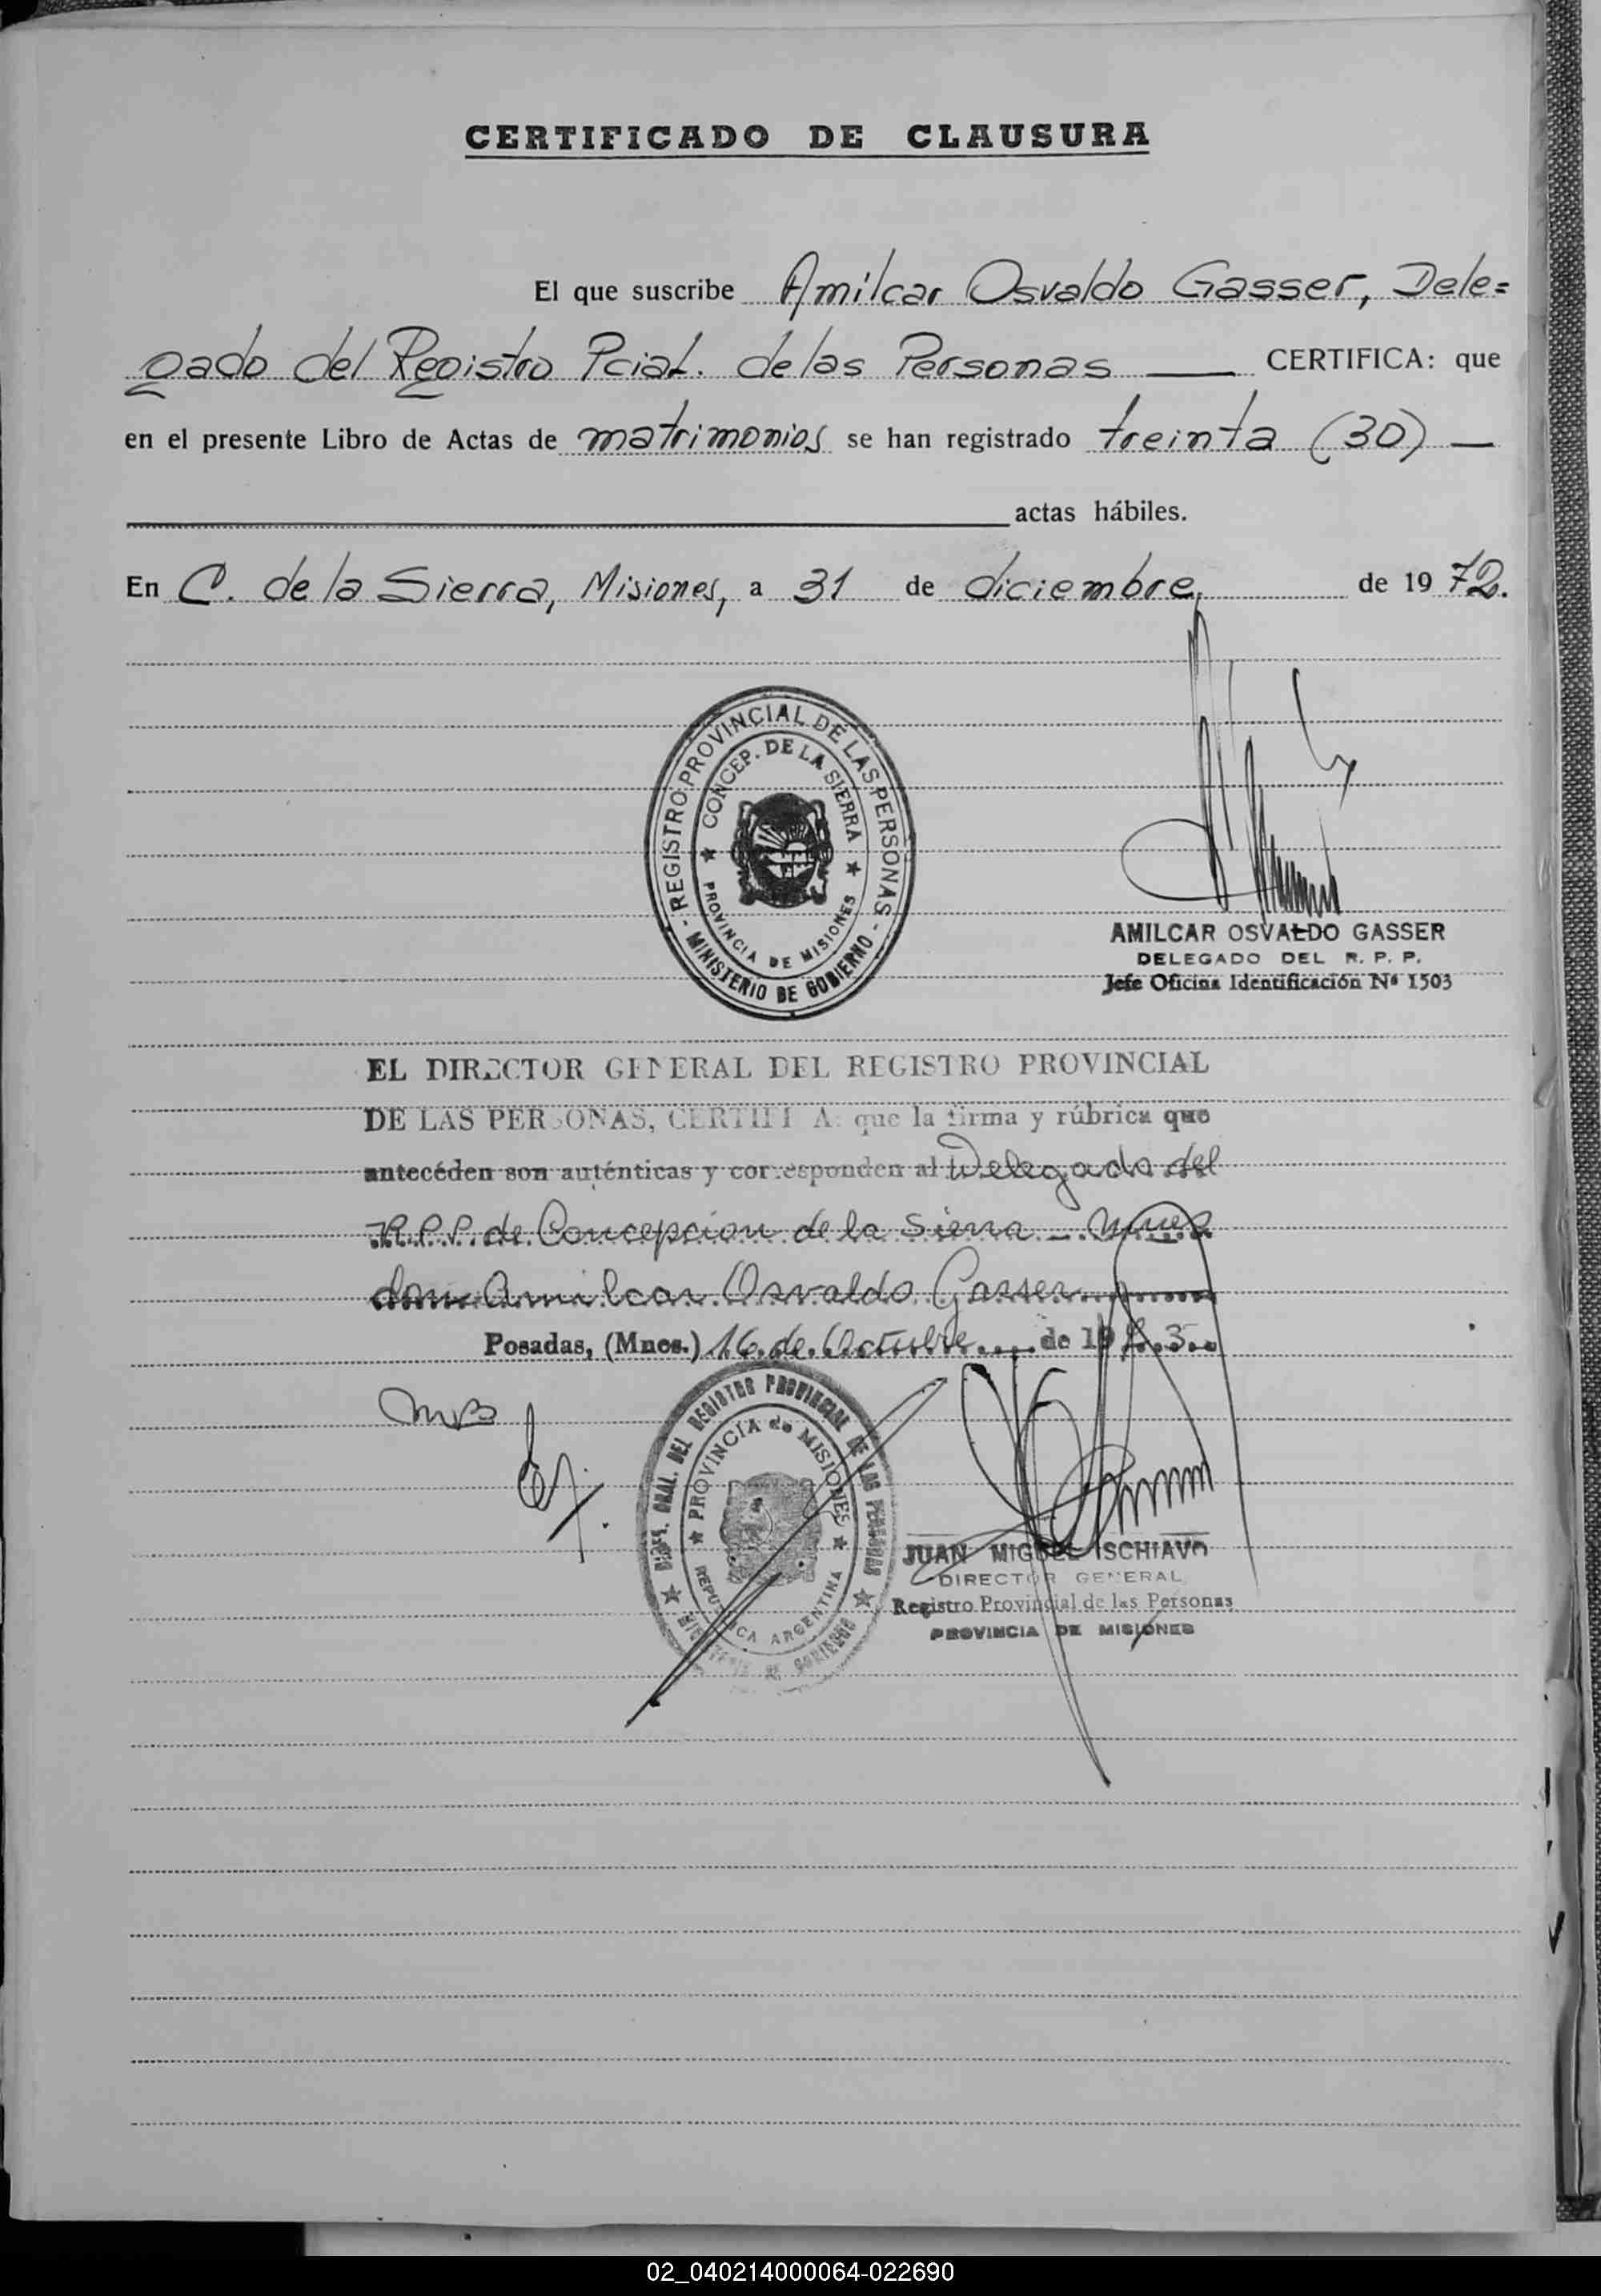 CERTIFICADO DE CLAUSURA
El que suscribe Amilcar Osvaldo Gasser, Dele=
gado del Registro Pcial. de las Personas CERTIFICA: que
en el presente Libro de Actas de matrimonios se han registrado treinta (30) —
actas hábiles.
En C. de la Sierra, Misiones, a 31 de diciembre, de 1972.
- REGISTRO PROVINCIAL DE LAS PERSONAS -
MINISTERIO DE GOBIERNO
★ CONCEP. DE LA SIERRA ★
PROVINCIA DE MISIONES
AMILCAR OSVALDO GASSER
DELEGADO DEL R. P. P.
Jefe Oficina Identificación Nº 1503
EL DIRECTOR GENERAL DEL REGISTRO PROVINCIAL
DE LAS PERSONAS, CERTIFICA: que la firma y rúbrica que
antecéden son auténticas y corresponden al Delegado del
R.P.P. de Concepcion de la Sierra - Mnes
don Amilcar Osvaldo Gasser
Posadas, (Mnes.) 16 de Octubre de 1973
DIREC. GRAL. DEL REGISTRO PROVINCIAL DE LAS PERSONAS
★ PROVINCIA de MISIONES ★
REPUBLICA ARGENTINA
★ MINISTERIO DE GOBIERNO ★
JUAN MIGUEL SCHIAVO
DIRECTOR GENERAL
Registro Provincial de las Personas
PROVINCIA DE MISIONES
02_040214000064-022690